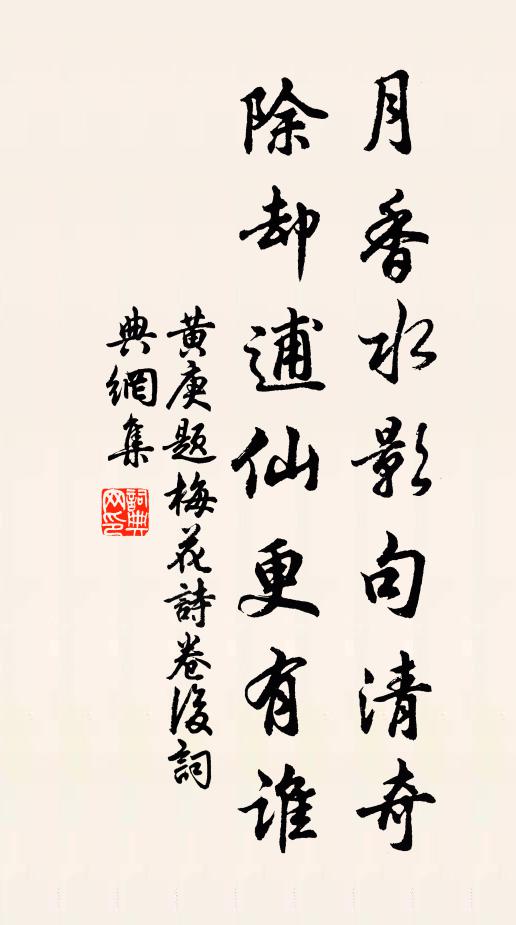 月香水影句清奇
除却逋仙更有誰
黄庚題梅花詩卷後詞
典網集
詞典网印